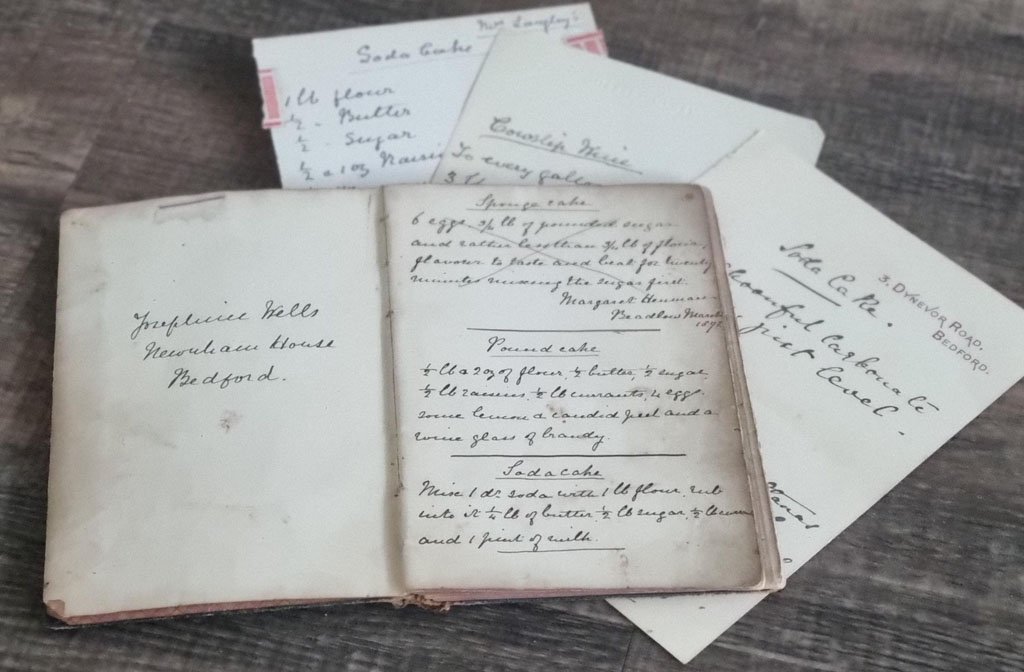 Mrs Langley's
Soda Cake
1 lb flour
½ - Butter
½ - Sugar
½ a 1oz Raisin
Cowslip Wine
To every gallo
Soda Cake.
3, DYNEVOR ROAD,
BEDFORD.
spoonful Carbonate
just level.
Josephine Wells
Newnham House
Bedford.
Sponge cake
6 eggs, ¾ lb of pounded sugar
and rather less than ¾ lb of flour,
flavour to taste and beat for twenty
minutes mixing the sugar first.
Margaret Henman
Beadlow March
Pound cake
½ lb a 2oz of flour, ½ butter, ½ sugar,
½ lb raisins, ½ lb currants, 4 eggs
some lemon & candid peel and a
wine glass of brandy.
Soda cake
Mix 1 dr. soda with 1 lb flour, rub
into it ¼ lb of butter ½ lb sugar, ½ lb
and 1 pint of milk.